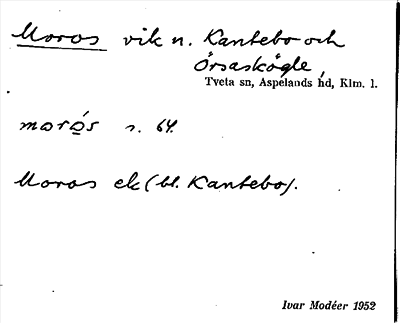 Moros vik n. Kantebo och
Örsaskögle,
Tveta sn, Aspelands hd, Klm. l.
morós s. 64.
Moros ek (bl. Kantebo).
Ivar Modéer 1952